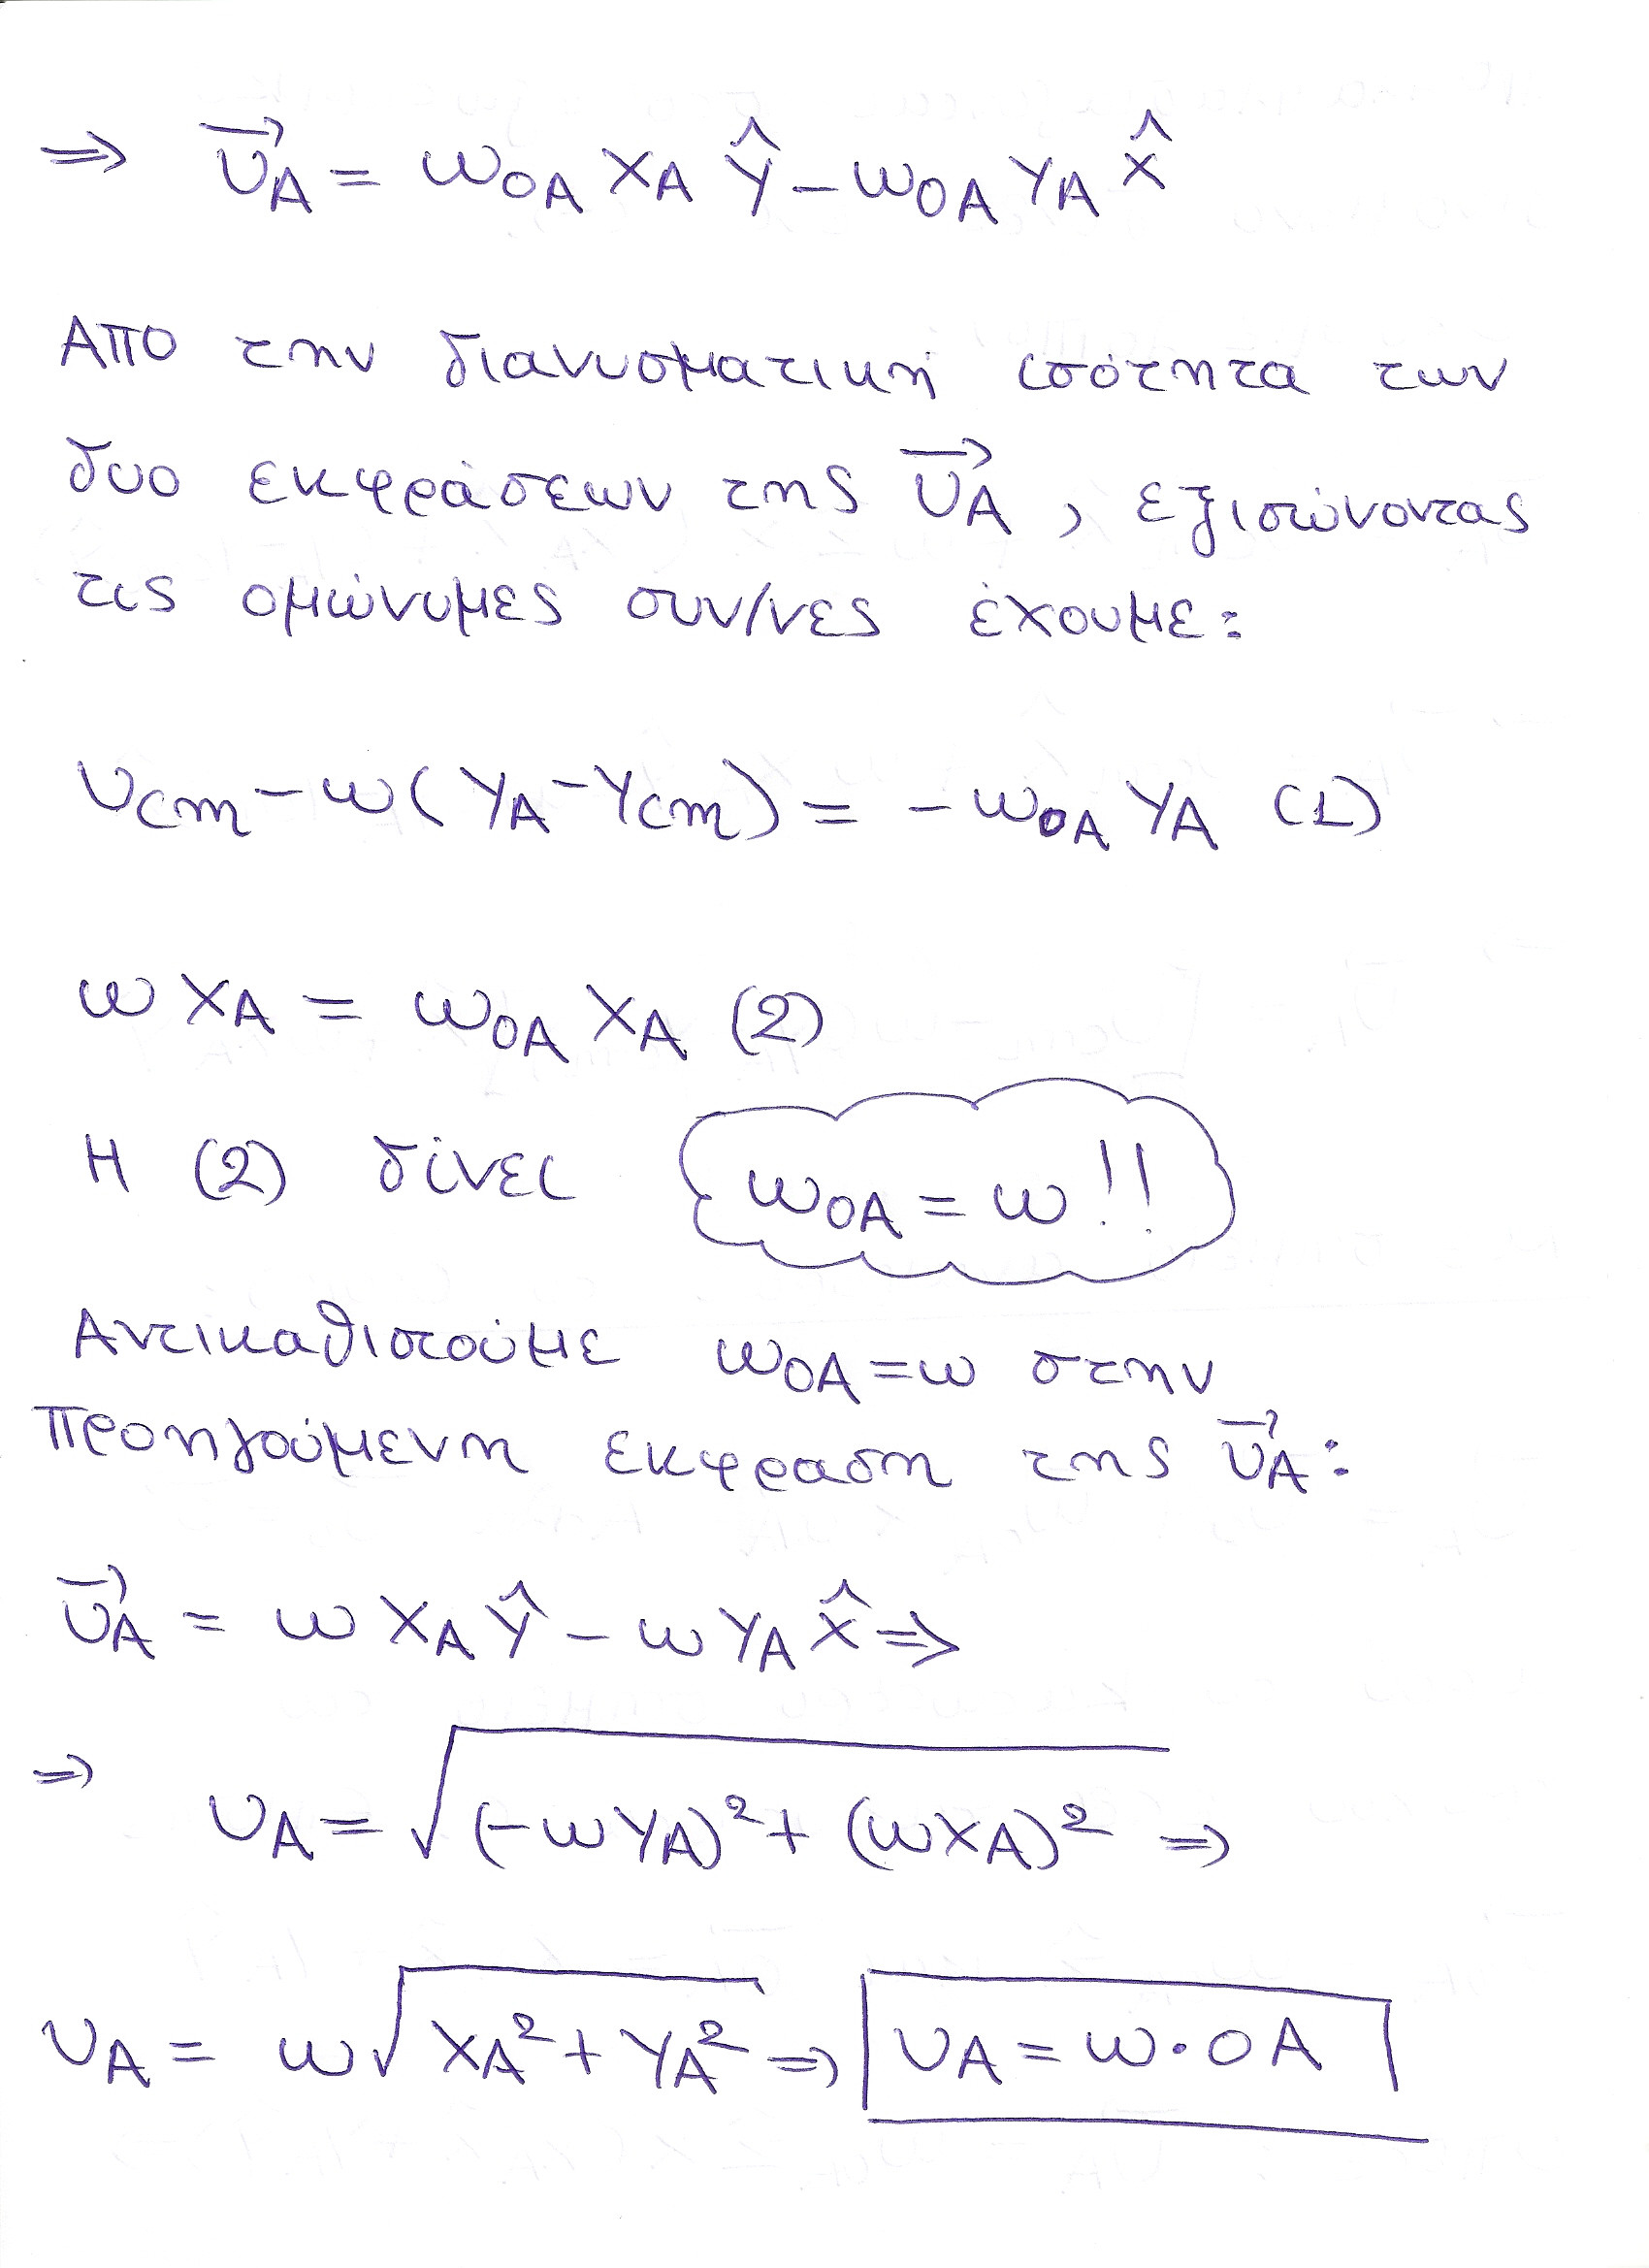 ⇒ υ⃗A = ωOA XA ŷ – ωOA YA x̂
Απο την διανυσματική ισότητα των
δυο εκφράσεων της υ⃗A , εξισώνοντας
τις ομώνυμες συν/νες έχουμε:
υcm – ω(YA – Ycm) = – ωOA YA (1)
ω XA = ωOA XA (2)
Η (2) δίνει ωOA = ω !!
Αντικαθιστούμε ωOA = ω στην
προηγούμενη εκφραση της υ⃗A :
υ⃗A = ω XA ŷ – ω YA x̂ ⇒
⇒ υA = √(-ωYA)² + (ωXA)² ⇒
υA = ω√XA² + YA² ⇒ υA = ω·OA